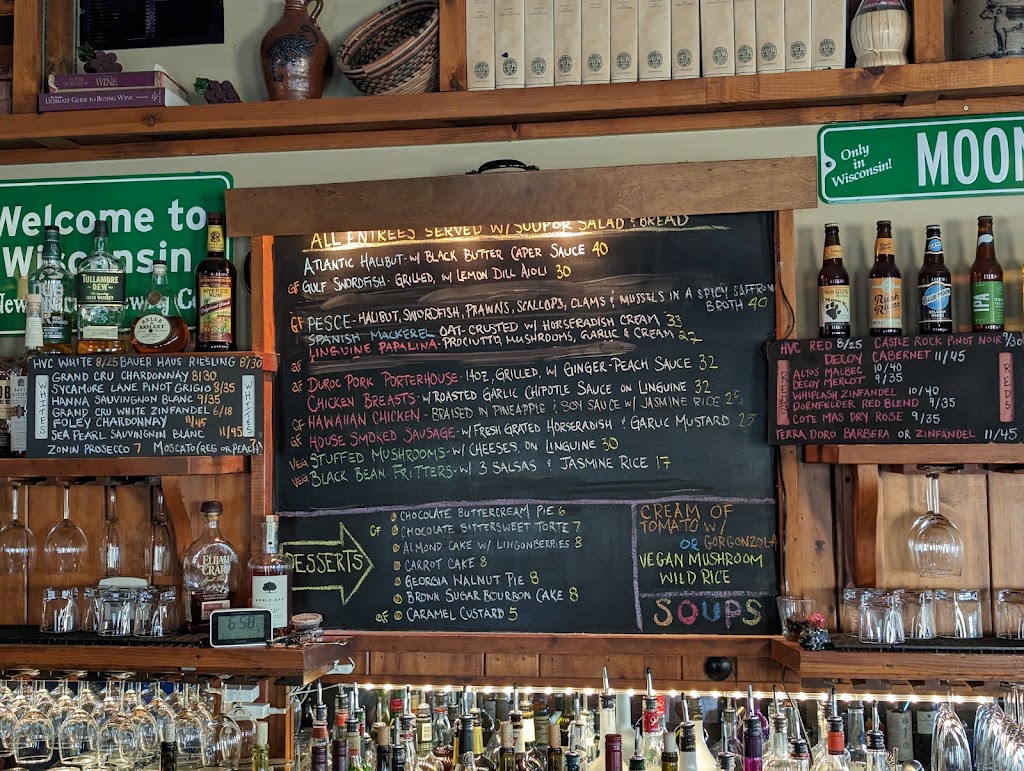 WINE
ULTIMATE GUIDE TO BUYING WINE
Welcome to
Wisconsin
Only
in
Wisconsin!
MOON
TULLAMORE
DEW
BELLE
MYERS'S
RUM
ALL ENTREES SERVED W/ SOUP OR SALAD & BREAD
ATLANTIC HALIBUT - W/ BLACK BUTTER CAPER SAUCE 40
GF GULF SWORDFISH - GRILLED, W/ LEMON DILL AIOLI 30
GF PESCE - HALIBUT, SWORDFISH, PRAWNS, SCALLOPS, CLAMS & MUSSELS IN A SPICY SAFFRON
BROTH 40
SPANISH MACKEREL OAT-CRUSTED W/ HORSERADISH CREAM 33
LINGUINE PAPALINA - PROCIUTTO, MUSHROOMS, GARLIC & CREAM 27
GF DUROC PORK PORTERHOUSE - 14OZ, GRILLED, W/ GINGER-PEACH SAUCE 32
CHICKEN BREASTS - W/ ROASTED GARLIC CHIPOTLE SAUCE ON LINGUINE 32
GF HAWAIIAN CHICKEN - BRAISED IN PINEAPPLE & SOY SAUCE W/ JASMINE RICE 25
GF HOUSE SMOKED SAUSAGE - W/ FRESH GRATED HORSERADISH & GARLIC MUSTARD 25
VEG STUFFED MUSHROOMS - W/ CHEESES, ON LINGUINE 30
VEG BLACK BEAN FRITTERS - W/ 3 SALSAS & JASMINE RICE 17
DESSERTS
CHOCOLATE BUTTERCREAM PIE 6
GF CHOCOLATE BITTERSWEET TORTE 7
ALMOND CAKE W/ LINGONBERRIES 8
CARROT CAKE 8
GEORGIA WALNUT PIE 8
BROWN SUGAR BOURBON CAKE 8
GF CARAMEL CUSTARD 5
CREAM OF
TOMATO W/
OR GORGONZOLA
VEGAN MUSHROOM
WILD RICE
SOUPS
HVC WHITE 8/25 BAUER HAUS RIESLING 8/30
GRAND CRU CHARDONNAY 8/30
SYCAMORE LANE PINOT GRIGIO 8/35
HANNA SAUVIGNON BLANC 9/35
GRAND CRU WHITE ZINFANDEL 6/18
FOLEY CHARDONNAY 11/45
SEA PEARL SAUVINGNON BLANC 11/45
ZONIN PROSECCO 7 MOSCATO (REG OR PEACH)
WHITES
WHITES
HVC RED 8/25 CASTLE ROCK PINOT NOIR 9/30
DECOY CABERNET 11/45
ALTOS MALBEC 10/40
DECOY MERLOT 9/35
WHIPLASH ZINFANDEL 10/40
DORNFELDER RED BLEND 9/35
COTE MAS DRY ROSE 9/35
TERRA DORO BARBERA OR ZINFANDEL 11/45
REDS
REDS
ELIJAH
CRAIG
NOBLE OAK